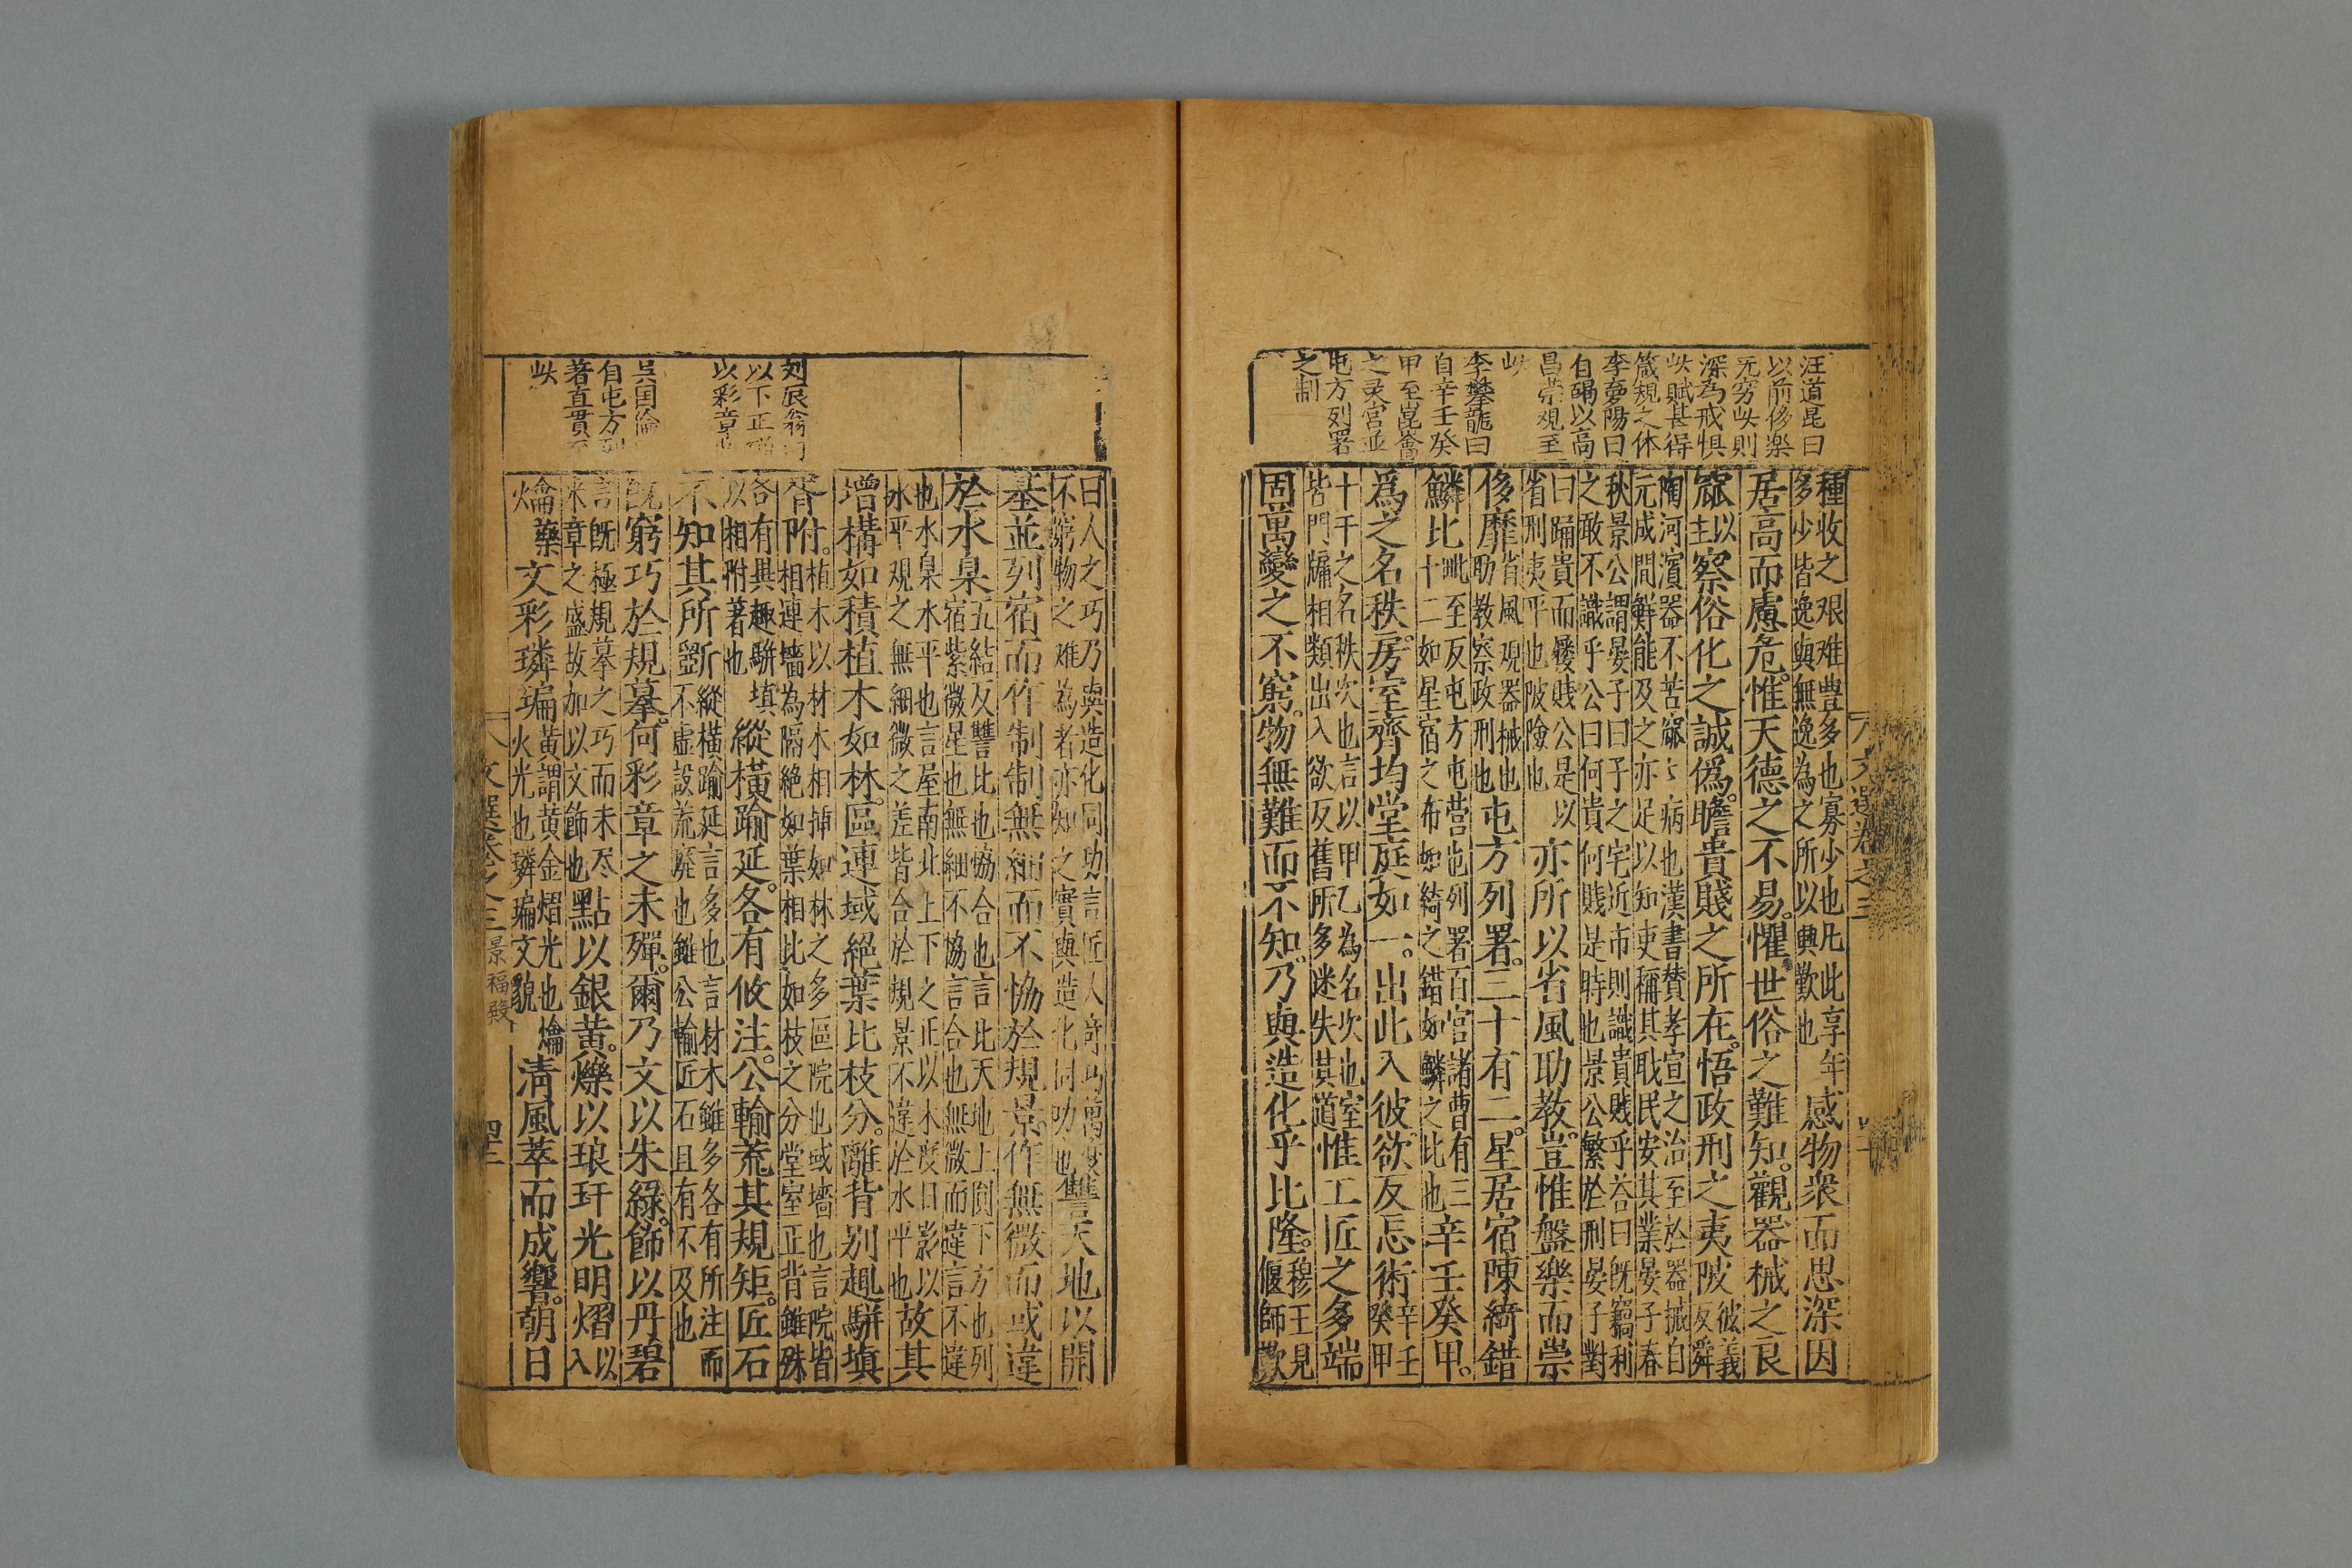 汪道昆曰
以前侈樂
无穷此則
深為戒惧
此賦甚得
箴規之体
李夢陽曰
自碣以高
昌崇观至
此
李攀龍曰
自辛壬癸
甲至崑崙
之灵宫並
屯方列署
之制
種收之艰难豊多也寡少也凡此享年
多少皆逸與無逸為之所以興歎也
感物衆而思深因
居高而慮危惟天德之不易懼世俗之難知觀器械之良
窳以
主
察俗化之誠偽瞻貴賤之所在悟政刑之夷陂
彼義
反舜
陶河濱器不苦窳〻病也漢書賛孝宣之治至於器械自
元成間鮮能及之亦足以知吏稱其耿民安其業晏子春
秋景公謂晏子曰子之宅近市則識貴賎乎荅曰既竊利
之敢不識乎公曰何貴何賎是時也景公繁於刑晏子對
曰踊貴而屨賎公是以
省刑夷平也陂險也
亦所以省風助教豈惟盤樂而崇
侈靡
省風观器械也
助教察政刑也
屯方列署三十有二星居宿陳綺錯
鱗比
毗至反屯方屯营也列署百官諸曹有三
十二如星宿之布如綺之錯如鱗之比也
辛壬癸甲
爲之名秩房室齊均堂庭如一出此入彼欲反忘術
辛壬
癸甲
十干之名秩次也言以甲乙為名次也室
皆門牖相類出入欲反舊所多迷失其道
惟工匠之多端
固萬變之不窮物無難而不知乃與造化乎比隆
穆王見
偃師歎
文選卷之三
曰人之巧乃與造化同功言匠人奇巧萬
不窮物之难為者亦知之實與造化同功也
讐天地以開
基並列宿而作制制無細而不恊於規景作無微而或違
於水臬
五結反讐比也恊合也言比天地上圎下方也列
宿紫微星也無細不恊言合也無微而違言不違
也水臬水平也言屋南北上下之正以木度日影以
水平观之無細微之差皆合於規景不違於水平也
故其
增構如積植木如林區連域絕葉比枝分離背别趣駢塡
胥附
植木以材木相掉如林之多區院也域墻也言院皆
相連墻為隔絶如葉相比如枝之分堂室正背雖殊
各有具趣駢填
以相附著也
縱橫踰延各有攸注公輸荒其規矩匠石
不知其所斵
縱橫踰延言多也言材木雖多各有所注而
不虛設荒廢也雖公輸匠石且有不及也
既窮巧於規摹何彩章之未殫爾乃文以朱綠飾以丹碧
言既極規摹之巧而未尽
采章之盛故加以文飾也
點以銀黃爍以琅玕光明熠
以
入
爚藥
㷍
文彩璘㻞
黃謂黄金熠光也爚
火光也璘㻞文貌
清風萃而成響朝日
刘辰翁曰
以下正𤨏
以彩章此
吴国倫
自屯方列
署直貫至
此
文選卷之三
景福殿
四十一